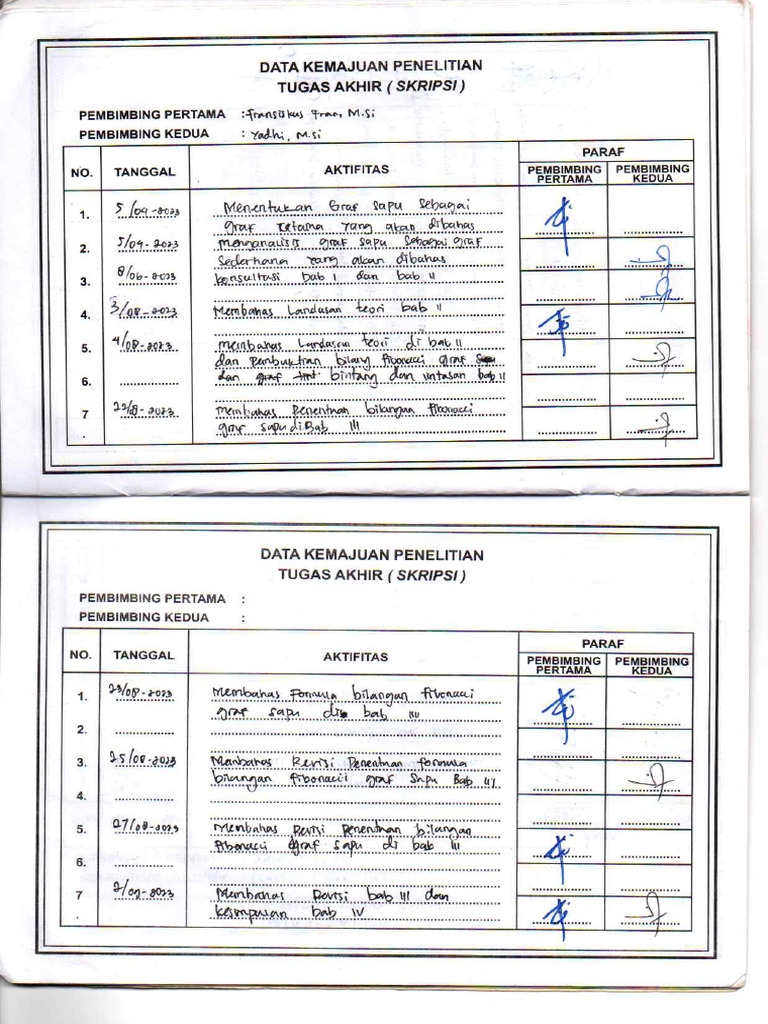 DATA KEMAJUAN PENELITIAN
TUGAS AKHIR ( SKRIPSI )
PEMBIMBING PERTAMA : Fransiskus Fran, M.Si
PEMBIMBING KEDUA : Yadhi, M.Si
NO. TANGGAL AKTIFITAS PARAF
PEMBIMBING PERTAMA PEMBIMBING KEDUA
1. 5/04-2023 Menentukan Graf Sapu Sebagai
graf yang akan dibahas
2. 5/04-2023 menganalisis graf sapu sebagai graf
Sederhana yang akan dibahas
3. 8/06-2023 konsultasi bab I dan bab II
4. 3/08-2023 Membahas Landasan teori bab II
5. 4/08-2023 membahas Landasan teori di bab II
dan pembuktian bilang fibonacci graf
6. dan graf bintang dan lintasan bab II
7. 22/08-2023 membahas Penentuan bilangan fibonacci
graf sapu di Bab III
DATA KEMAJUAN PENELITIAN
TUGAS AKHIR ( SKRIPSI )
PEMBIMBING PERTAMA :
PEMBIMBING KEDUA :
NO. TANGGAL AKTIFITAS PARAF
PEMBIMBING PERTAMA PEMBIMBING KEDUA
1. 23/08-2023 Membahas Formula bilangan fibonacci
graf sapu di bab III
2.
3. 25/08-2023 Membahas Revisi Penentuan formula
bilangan fibonacci graf Sapu Bab III
4.
5. 27/08-2023 Membahas Revisi Penentuan bilangan
fibonacci graf sapu di bab III
6.
7. 2/09-2023 Membahas Revisi bab III dan
kesimpulan bab IV